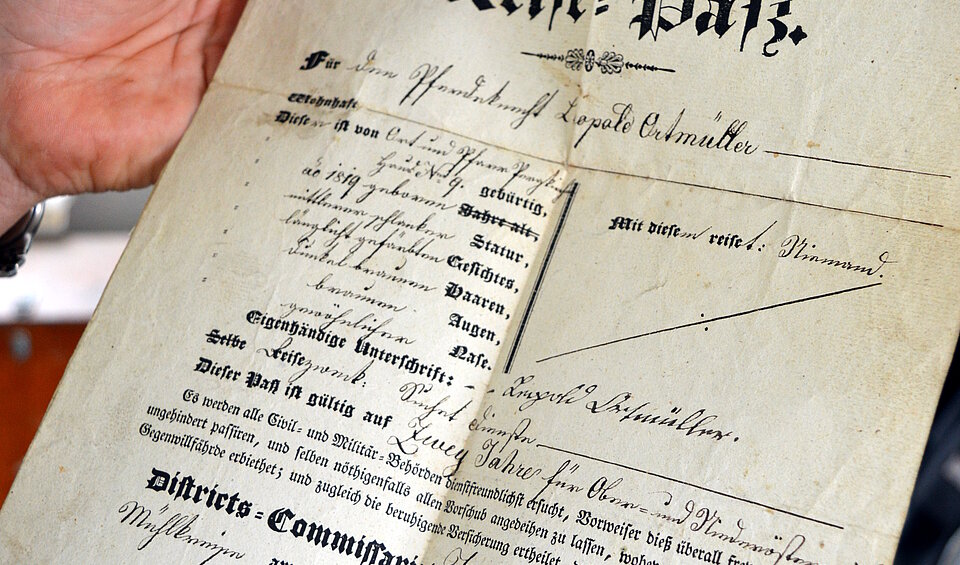 Reise-Paß.
Für den Pferdeknecht Lopold Ortmüller
Wohnhaft
Dieser ist von Ort und Pfarr
Haus No 9. gebürtig,
ao 1819 geboren Jahre alt,
mittlerer schlanker Statur,
länglicht gefärbten Gesichtes,
dunkelbraunen Haaren,
braunen Augen,
gewöhnlicher Nase.
Mit diesem reiset: Niemand.
Eigenhändige Unterschrift: - - Leopold Ortmüller.
Selbe Reisezweck: Suchet Dienste
Dieser Paß ist gültig auf Zwey Jahre für Ober- und
Es werden alle Civil- und Militär-Behörden dienstfreundlichst ersucht, Vorweiser dieß überall
ungehindert passiren, und selben nöthigenfalls allen Vorschub angedeihen zu lassen,
Gegenwillfährde erbiethet; und zugleich die beruhigende Versicherung ertheilet
Districts-Commissari